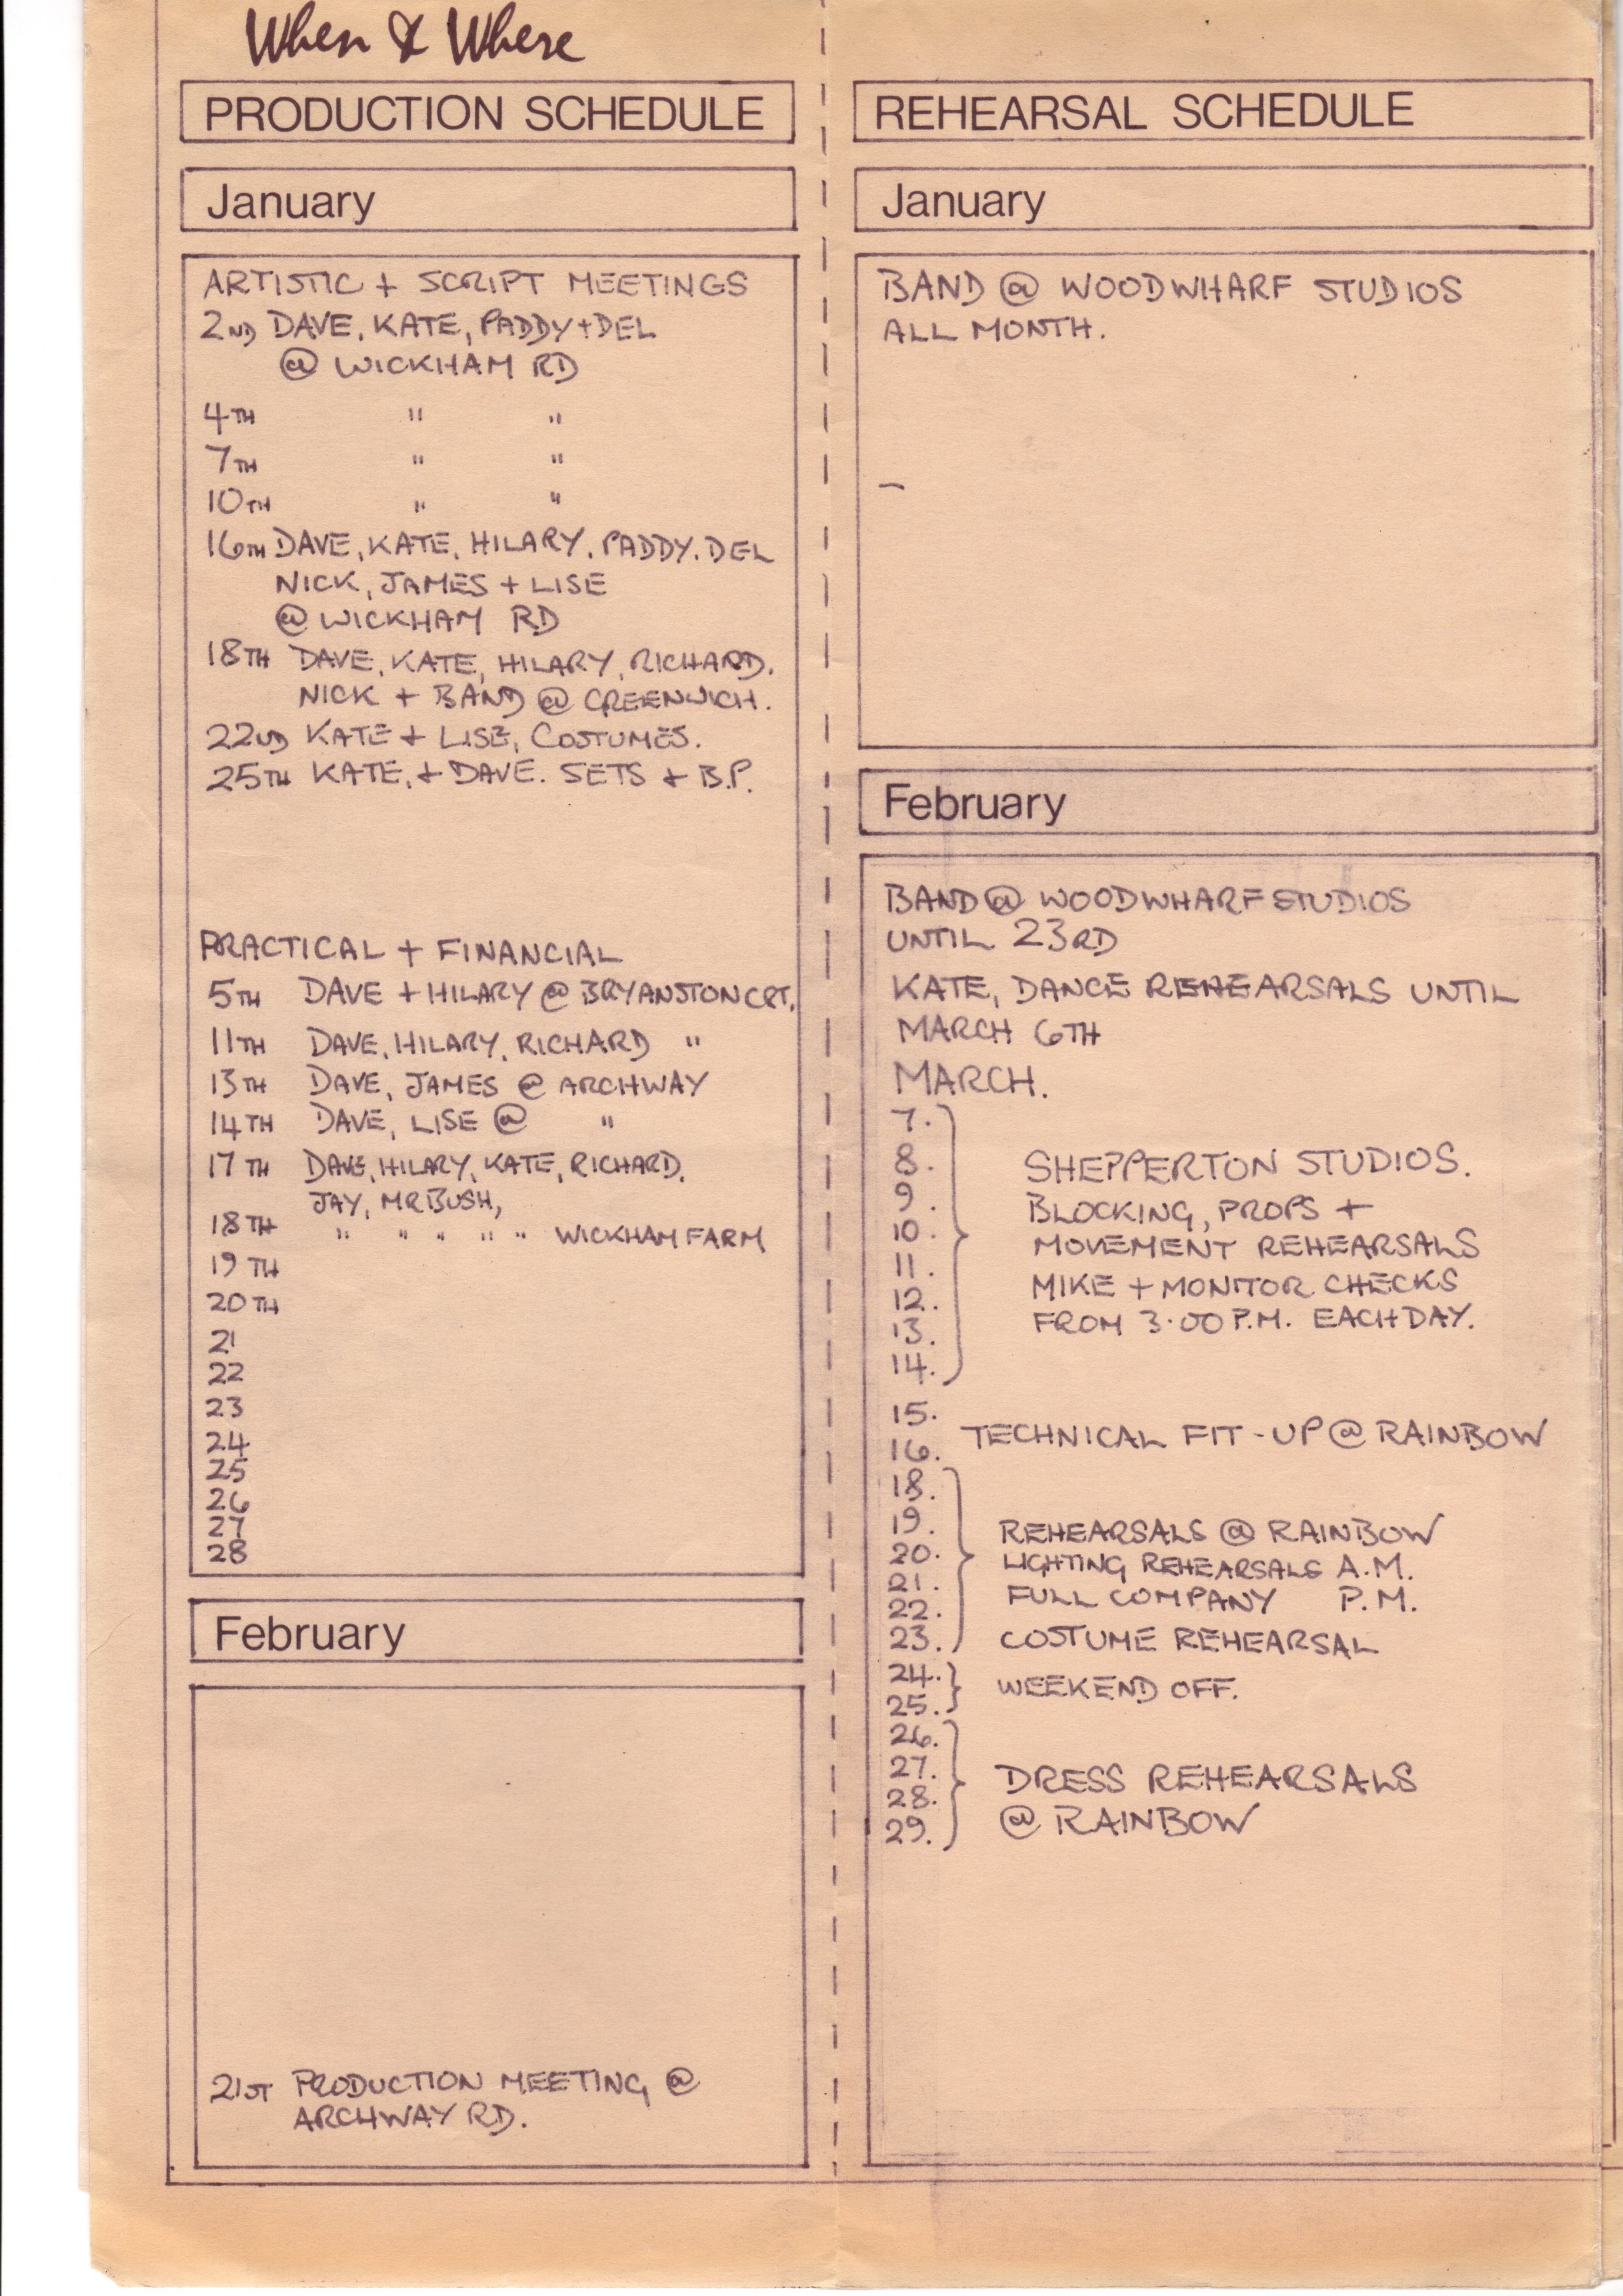 When & Where
PRODUCTION SCHEDULE
January
ARTISTIC + SCRIPT MEETINGS
2ND DAVE, KATE, PADDY + DEL
@ WICKHAM RD
4TH " "
7TH " "
10TH " "
16TH DAVE, KATE, HILARY, PADDY. DEL
NICK, JAMES + LISE
@ WICKHAM RD
18TH DAVE, KATE, HILARY, RICHARD.
NICK + BAND @ GREENWICH.
22ND KATE + LISE, COSTUMES.
25TH KATE, + DAVE. SETS + B.P.
PRACTICAL + FINANCIAL
5TH DAVE + HILARY @ BRYANSTON CRT.
11TH DAVE, HILARY, RICHARD "
13TH DAVE, JAMES @ ARCHWAY
14TH DAVE, LISE @ "
17TH DAVE, HILARY, KATE, RICHARD,
JAY, MR BUSH,
18TH " " " " " WICKHAM FARM
19TH
20TH
21
22
23
24
25
26
27
28
February
21ST PRODUCTION MEETING @
ARCHWAY RD.
REHEARSAL SCHEDULE
January
BAND @ WOODWHARF STUDIOS
ALL MONTH.
February
BAND @ WOODWHARF STUDIOS
UNTIL 23RD
KATE, DANCE REHEARSALS UNTIL
MARCH 6TH
MARCH.
7.
8. SHEPPERTON STUDIOS.
9. BLOCKING, PROPS +
10. MOVEMENT REHEARSALS
11. MIKE + MONITOR CHECKS
12. FROM 3.00 P.M. EACH DAY.
13.
14.
15.
16. TECHNICAL FIT-UP @ RAINBOW
18.
19. REHEARSALS @ RAINBOW
20. LIGHTING REHEARSALS A.M.
21. FULL COMPANY P.M.
22.
23. COSTUME REHEARSAL
24. WEEKEND OFF.
25.
26.
27. DRESS REHEARSALS
28. @ RAINBOW
29.